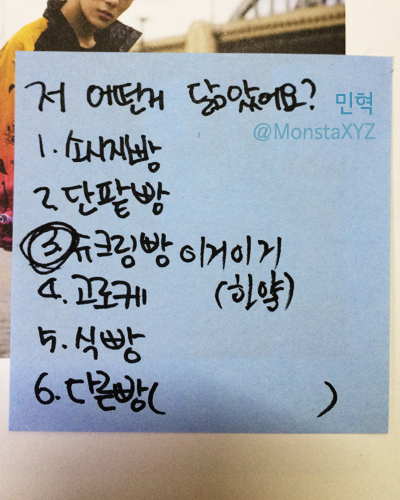 저 어떤거 닮았어요? 민혁
@MonstaXYZ
1. 소시지빵
2. 단팥빵
③ 슈크림빵 이거이거
4. 고로케 (힌약)
5. 식빵
6. 다른빵( )